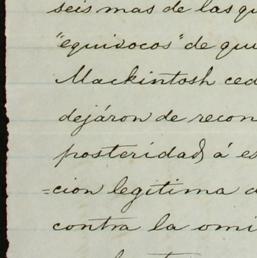 seis mas de las qu
"equivocos" de qui
Mackintosh ced
dejáron de recon
posteridad á es
=cion legitima d
contra la omi